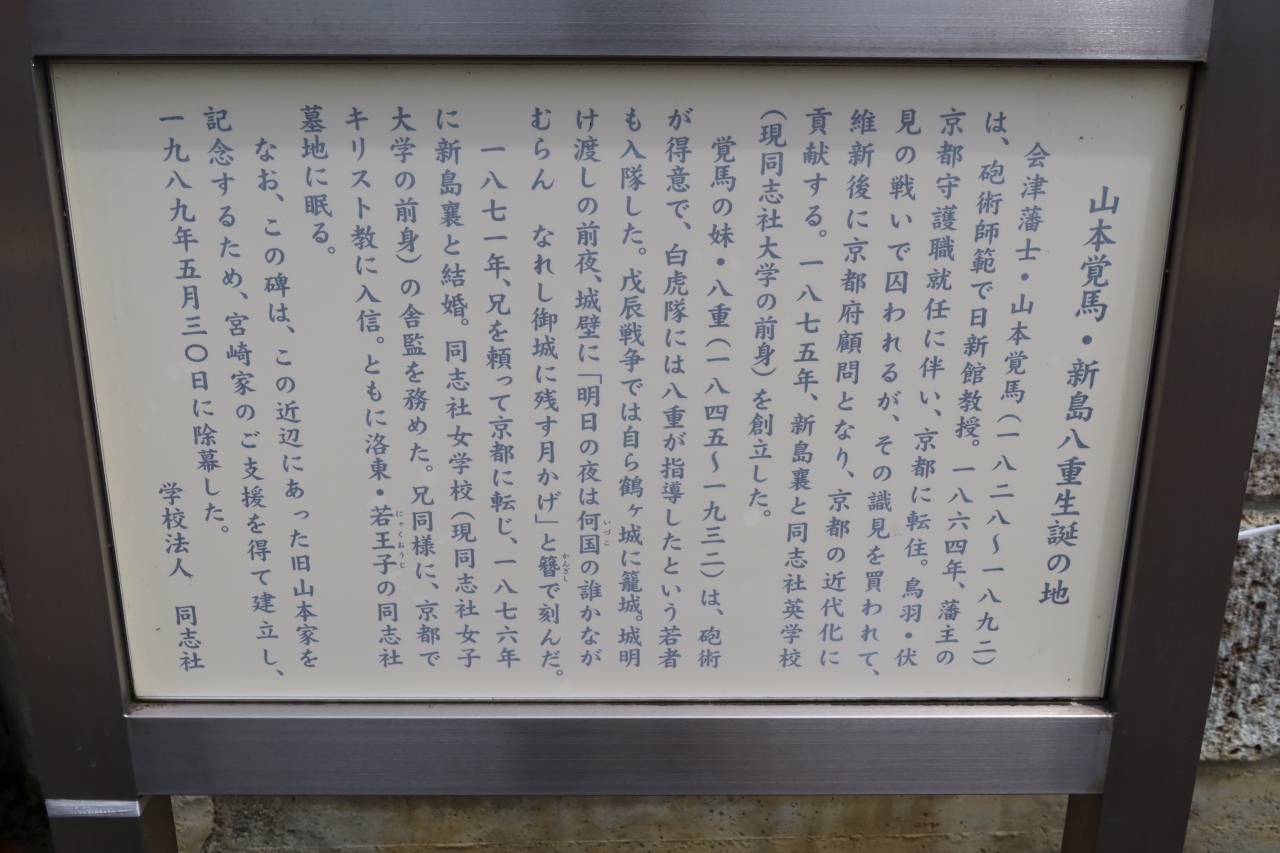 山本覚馬・新島八重生誕の地
会津藩士・山本覚馬(一八二八〜一八九二)
は、砲術師範で日新館教授。一八六四年、藩主の
京都守護職就任に伴い、京都に転住。鳥羽・伏
見の戦いで囚われるが、その識見を買われて、
維新後に京都府顧問となり、京都の近代化に
貢献する。一八七五年、新島襄と同志社英学校
(現同志社大学の前身)を創立した。
覚馬の妹・八重(一八四五〜一九三二)は、砲術
が得意で、白虎隊には八重が指導したという若者
も入隊した。戊辰戦争では自ら鶴ヶ城に籠城。城明
け渡しの前夜、城壁に「明日の夜は何国の誰かなが
いづこ
むらん なれし御城に残す月かげ」と簪で刻んだ。
かんざし
一八七一年、兄を頼って京都に転じ、一八七六年
に新島襄と結婚。同志社女学校(現同志社女子
大学の前身)の舎監を務めた。兄同様に、京都で
キリスト教に入信。ともに洛東・若王子の同志社
にゃくおうじ
墓地に眠る。
なお、この碑は、この近辺にあった旧山本家を
記念するため、宮崎家のご支援を得て建立し、
一九八九年五月三〇日に除幕した。
学校法人 同志社